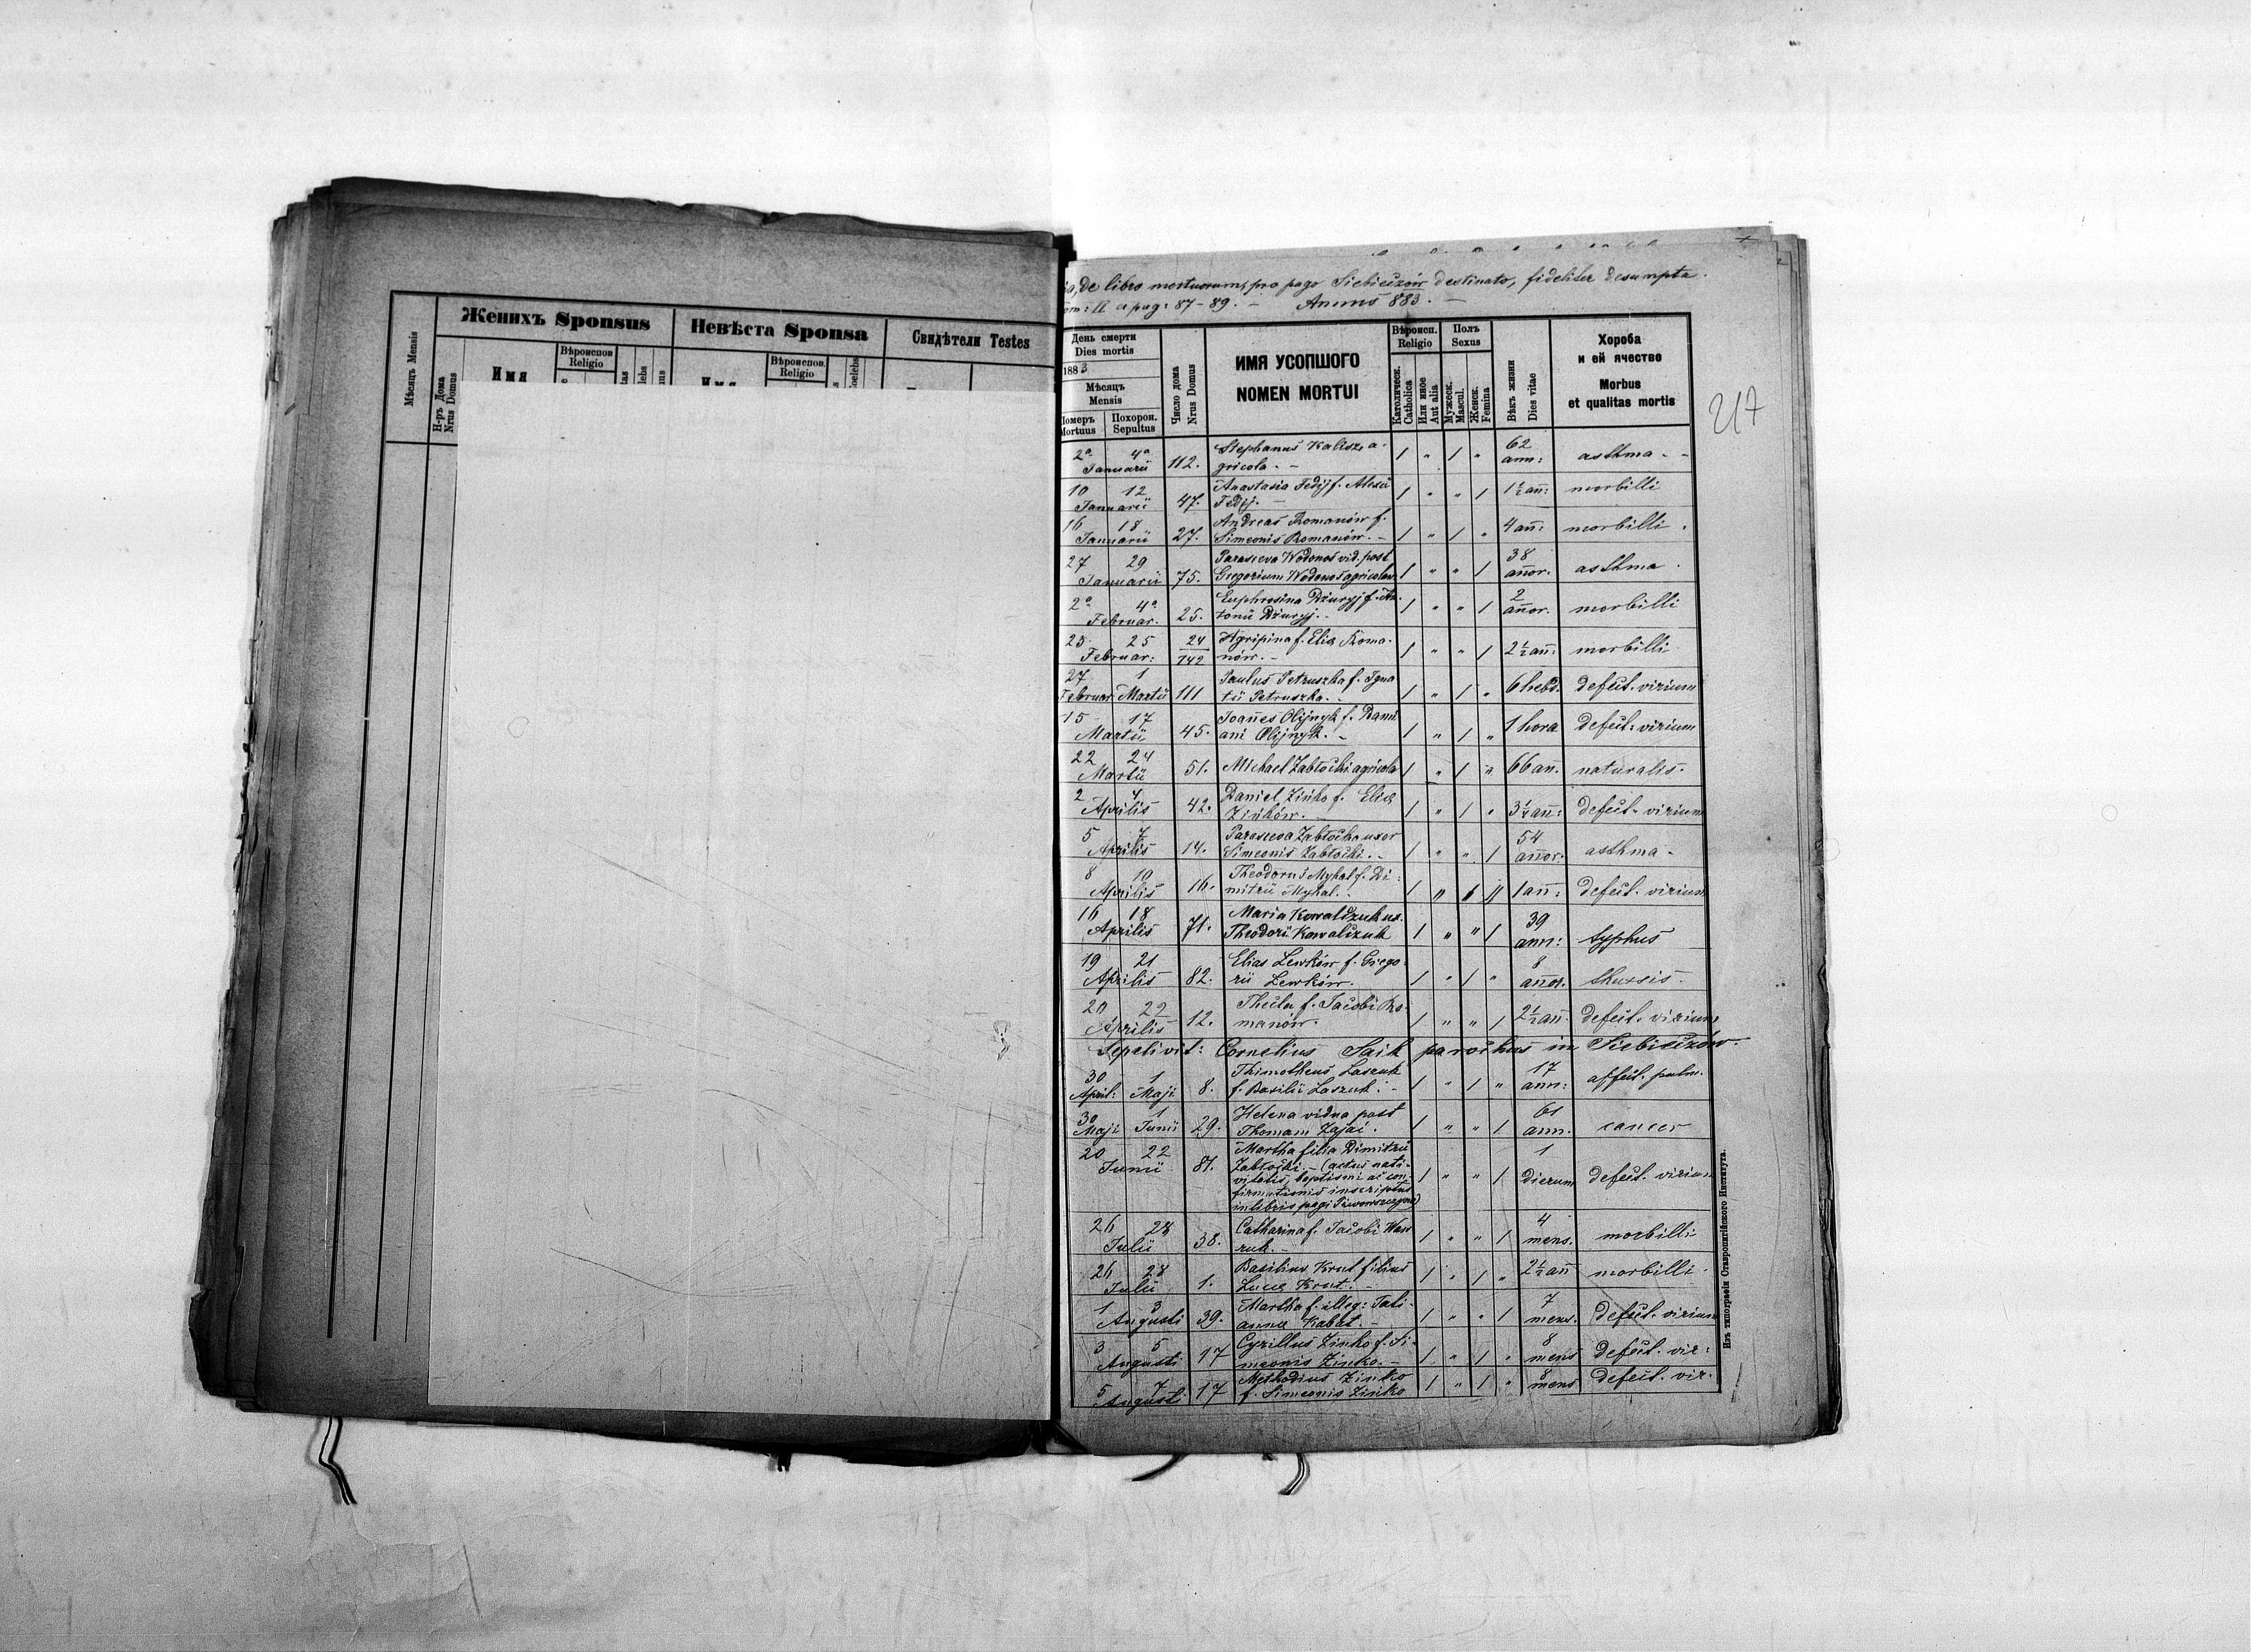 Женихъ Sponsus
Невѣста Sponsa
Свидѣтели Testes
Мѣсяцъ Mensis
Н-ръ Дома
Nrus Domus
Имя
Вѣроиспов
Religio
Вѣроиспов.
Religio
de libro mortuorum, pro pago Siebieczów destinato, fideliter desumpta.
II a pag: 87-89. - Annus 883. -
День смерти
Dies mortis
1883
Мѣсяцъ
Mensis
Номеръ
Mortuus
Похорон.
Sepultus
Число дома
Nrus Domus
ИМЯ УСОПШОГО
NOMEN MORTUI
Вѣроисп.
Religio
Католическ.
Catholica
Или инное
Aut alia
Полъ
Sexus
Мужеск.
Mascul.
Женск.
Femina
Вѣкъ жизни
Dies vitae
Хороба
и ей ячество
Morbus
et qualitas mortis
217
2a 4a Januarii 112. Stephanus Kalisz, a-
gricola. - 1 " 1 " 62 ann: asthma - -
10 12 Januarii 47. Anastasia Fedij f. Alexii
Fedij. - 1 " " 1 1½ an̄: morbilli
16 18 Januarii 27. Andreas Romanów f.
Simeonis Romanów. - 1 " 1 " 4 an̄: morbilli.
27 29 Januarii 75. Parasceva Wodonos vid. post
Gregorium Wodonos agricolam 1 " " 1 38 an̄or. asthma.
2a 4a Februar. 25. Euphrosina Dżuryj f. An-
tonii Dżuryj. - 1 " " 1 2 an̄or. morbilli
23 25 Februar: 24/142 Agripina f. Eliæ Roma-
nów. - 1 " " 1 2½ an̄: morbilli
27 Februar. 1 Martii 111 Paulus Petruszka f. Igna
tii Petruszka. - 1 " 1 " 6 hebd. defect. virium
15 17 Martii 45. Joan̄es Olijnyk f. Dami
ani Olijnyk. - 1 " 1 " 1 hora defect: virium
22 24 Martii 51. Michael Zabłocki agricola 1 " 1 " 66 an̄. naturalis.
2 4 Aprilis 42. Daniel Zińko f. Eliæ
Zińków. - 1 " 1 " 3½ an̄: defect. virium
5 7 Aprilis 14. Parasceva Zabłocka uxor
Simeonis Zabłocki. - 1 " " 1 54 an̄or. asthma -
8 10 Aprilis 16. Theodorus Myhal f. Di-
mitrii Myhal. - 1 " 1 " 1 an̄: defect. virium
16 18 Aprilis 71. Maria Kowalczuk ux.
Theodori Kowalczuk 1 " " 1 39 ann: typhus
19 21 Aprilis 82. Elias Lewków f. Grego-
rii Lewków. 1 " 1 " 8 an̄or.
20 22 Aprilis 12. Thecla f. Jacobi Ro-
manów. 1 " " 1 2½ an̄. defect. virium
Sepelivit: Cornelius Saik parochus in Siebieczów.
30 April: 1 Maji 8. Thimotheus Laszuk
f. Basilii Laszuk. - 1 " 1 " 17 ann: affect. pulm.
30 Maji 1 Junii 29. Helena vidua post
Thomam Zajać. 1 " " 1 61 ann. cancer
20 22 Junii 81. Martha filia Dimitrii
Zabłocki. - (actus nati-
vitatis, baptismi ac con-
firmationis inscriptus
in libris pagi 1 " " 1 1 dierum defect. virium
26 28 Julii 38. Catharina f. Jacobi Waw
ruk. - 1 " " 1 4 mens. morbilli
26 28 Julii 1. Basilius Krut filius
Lucæ Krut. - 1 " 1 " 2½ an̄ morbilli
1 3 Augusti 39. Martha f. illeg: Tati-
annæ Kabat. - 1 " " 1 7 mens. defect. virium
3 5 Augusti 17 Cyrillus Zińko f. Si-
meonis Zińko. - 1 " 1 " 8 mens defect. vir:
5 7 Augusti 17 Methodius Zińko
f. Simeonis Zińko 1 " 1 " 8 mens defect. vir.
Изъ типографіи Ставропигійского Института.